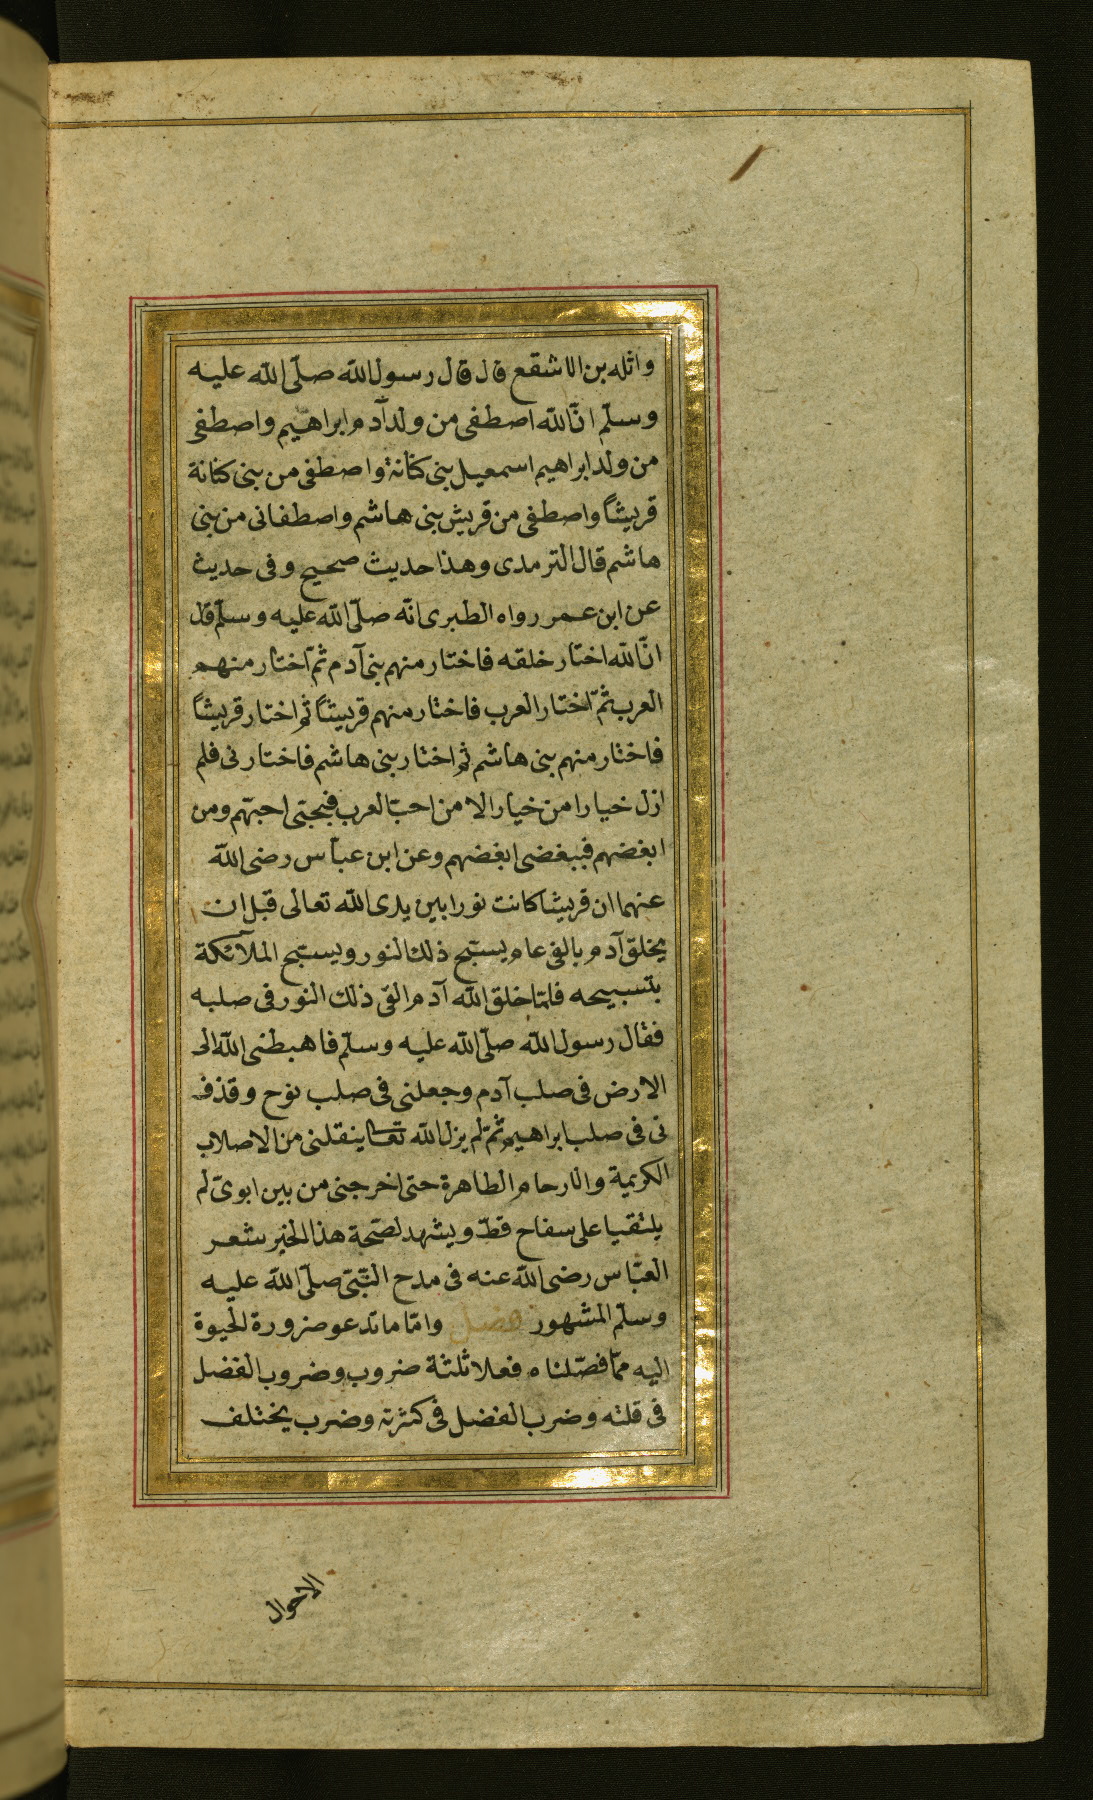 واثله بن الاشقع قال قال رسول الله صلّى الله عليه
وسلّم انّ الله اصطفى من ولد آدم ابراهيم واصطفى
من ولد ابراهيم اسمعيل بنى كنانة واصطفى من بنى كنانة
قريشاً واصطفى من قريش بنى هاشم واصطفانى من بنى
هاشم قال الترمدى وهذا حديث صحيح وفى حديث
عن ابن عمر رواه الطبرى انّه صلّى الله عليه وسلّم قال
انّ الله اختار خلقه فاختار منهم بنى آدم ثمّ اختار منهم
العرب ثمّ اختار العرب فاختار منهم قريشاً ثم اختار قريشاً
فاختار منهم بنى هاشم ثم اختار بنى هاشم فاختارنى فلم
ازل خيارا من خيار الا من احبّ العرب فبحبّى احبّهم ومن
ابغضهم فببغضى ابغضهم وعن ابن عبّاس رضى الله
عنهما ان قريشا كانت نورا بين يدى الله تعالى قبل ان
يخلق آدم بالفى عام يسبّح ذلك النور ويسبّح الملآئكة
بتسبيحه فلمّا خلق الله آدم القى ذلك النور فى صلبه
فقال رسول الله صلّى الله عليه وسلّم فاهبطنى الله الى
الارض فى صلب آدم وجعلنى فى صلب نوح وقذف
نى فى صلب ابراهيم ثمّ لم يزل الله تعا ينقلنى من الاصلاب
الكريمة والارحام الطاهرة حتى اخرجنى من بين ابوىّ لم
يلتقيا على سفاح قطّ ويشهد لصحّة هذا الخبر شعر
العبّاس رضى الله عنه فى مدح النّبىّ صلّى الله عليه
وسلّم المشهور فصل وامّا ما تدعو ضرورة الحيوة
اليه ممّا فصّلناه فعلا ثلثة ضروب وضروب الفضل
فى قلته وضرب الفضل فى كثرته وضرب يختلف
الاحوال